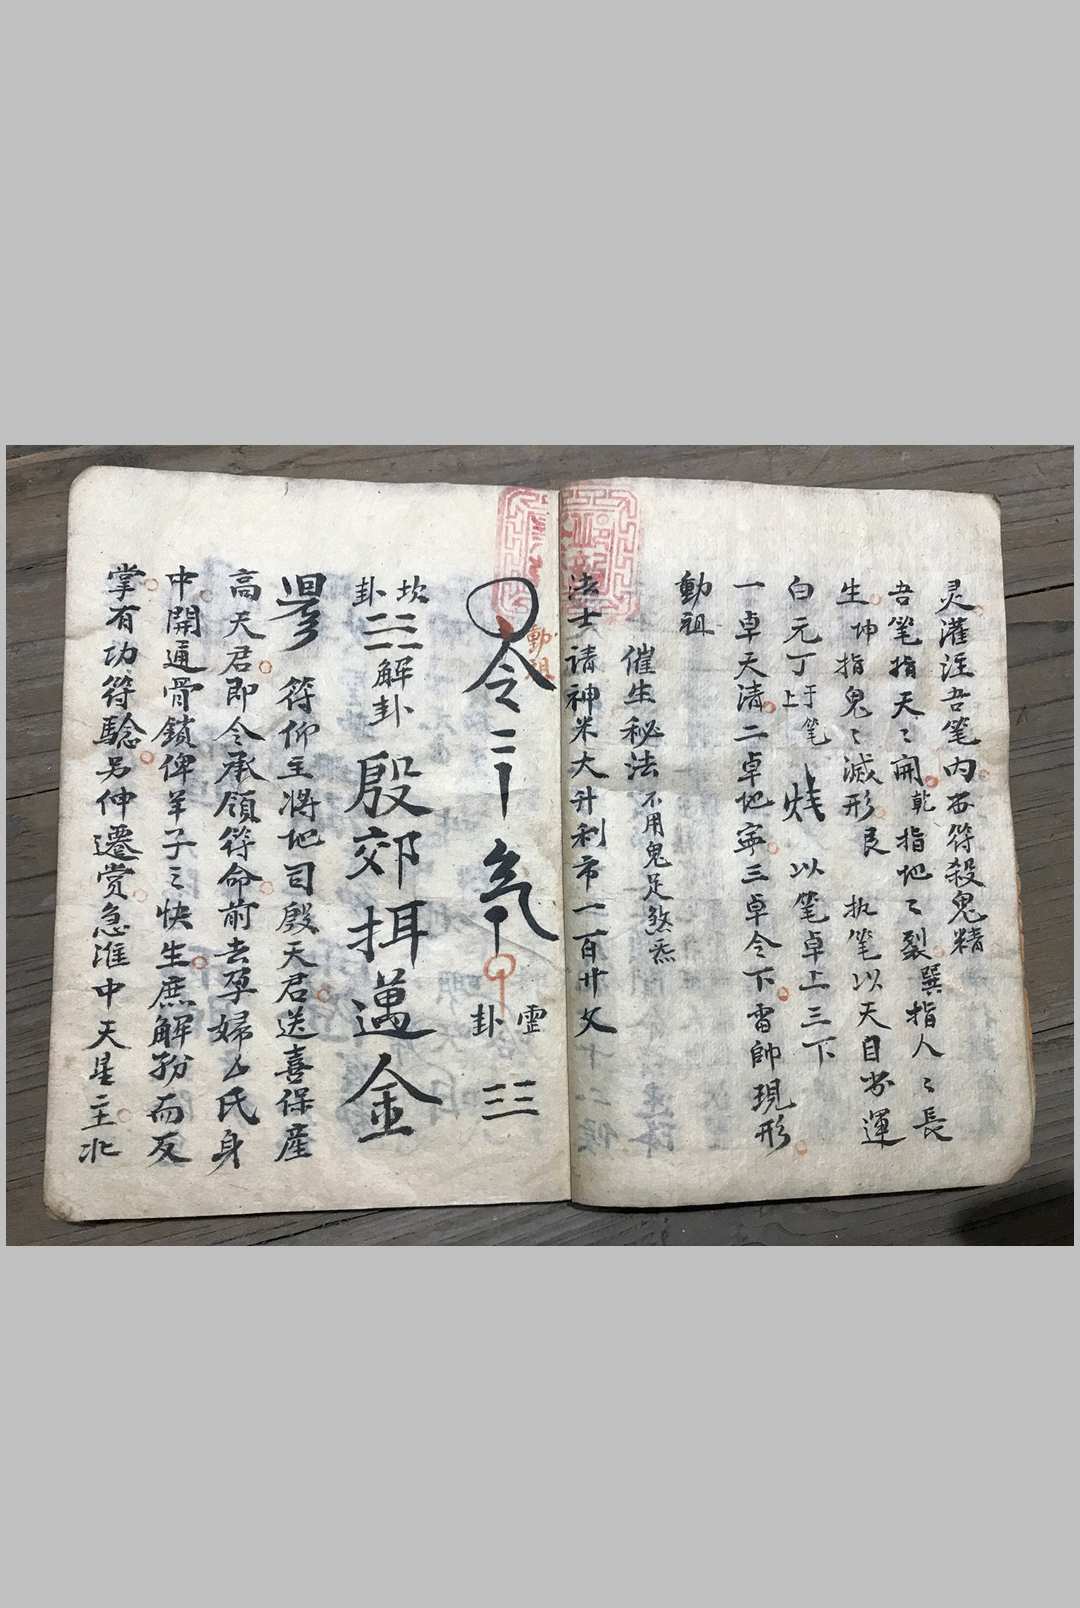 灵灌注吾笔内书符殺鬼精
吾笔指天〻開乾指地〻裂巽指人〻長
生坤指鬼〻滅形艮 执笔以天目书運
白元丁于笔上 以笔卓上三下
一卓天清二卓地寧三卓令下雷帥現形
動祖
催生秘法不用鬼足煞炁
法士请神米大升利市一百廿文
動祖
令
炁
霊卦
坎卦
解卦
殷郊揖邁金
符仰主將地司殷天君送喜保産
高天君即令承領符命前去孕婦厶氏身
中開通骨鎖俾羊子〻快生庶解粉而反
掌有功符驗另伸遷赏急准中天星主北